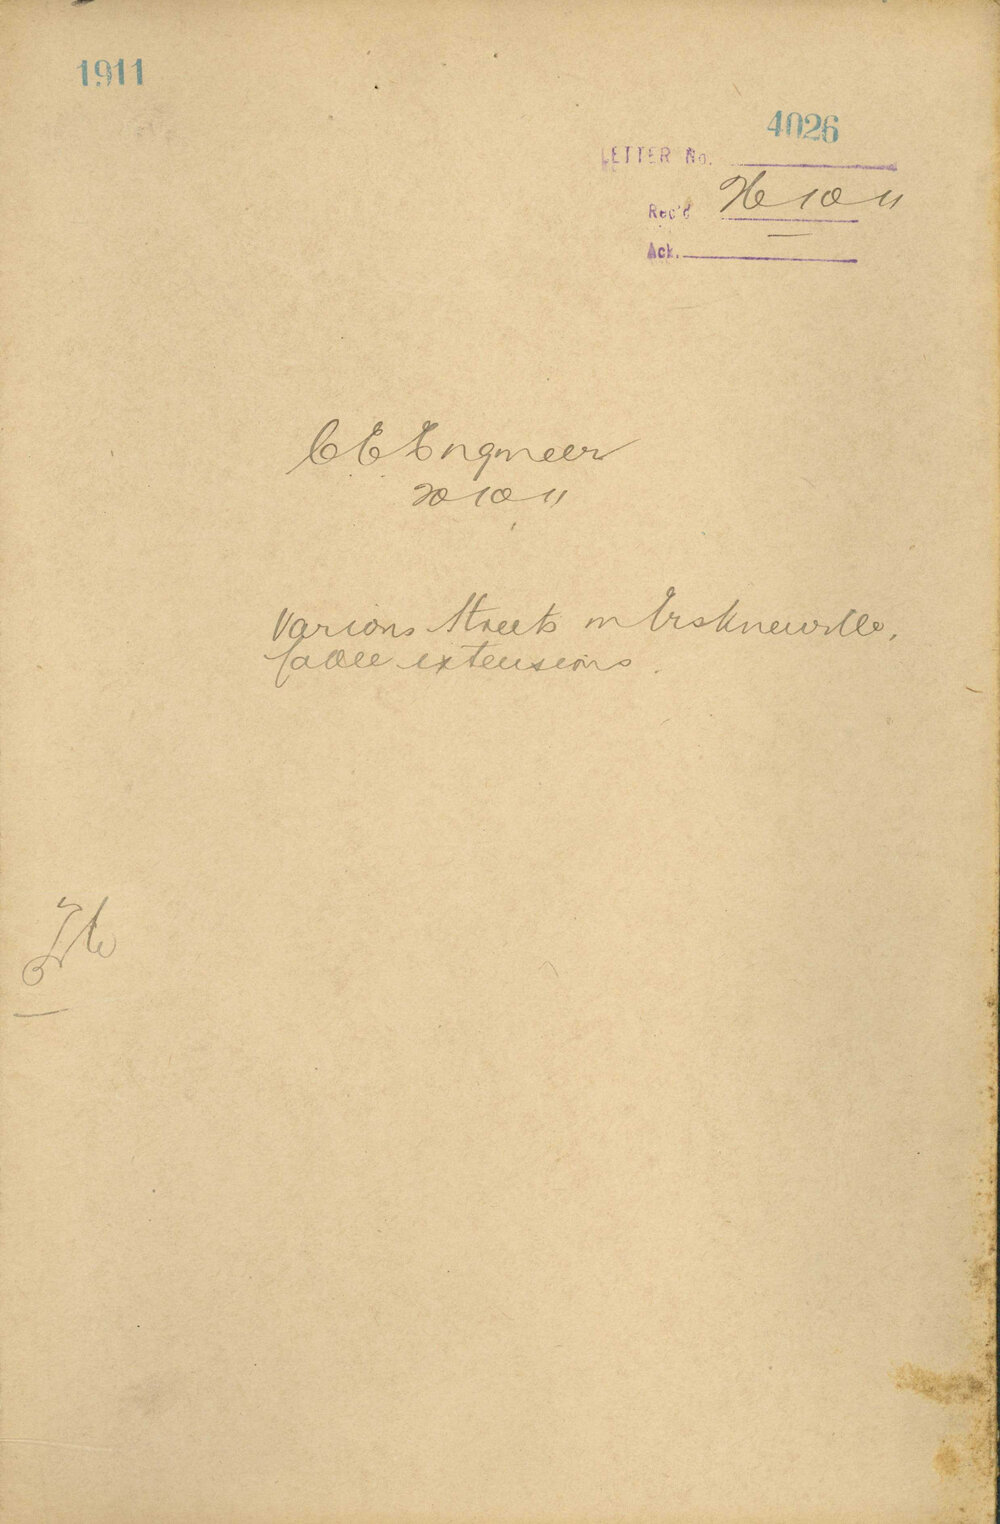 1911
4026
LETTER No.
Rec'd 26 10 11
Ack.
C E Engineer
20 10 11
Various Streets in Erskineville,
Cable extensions.